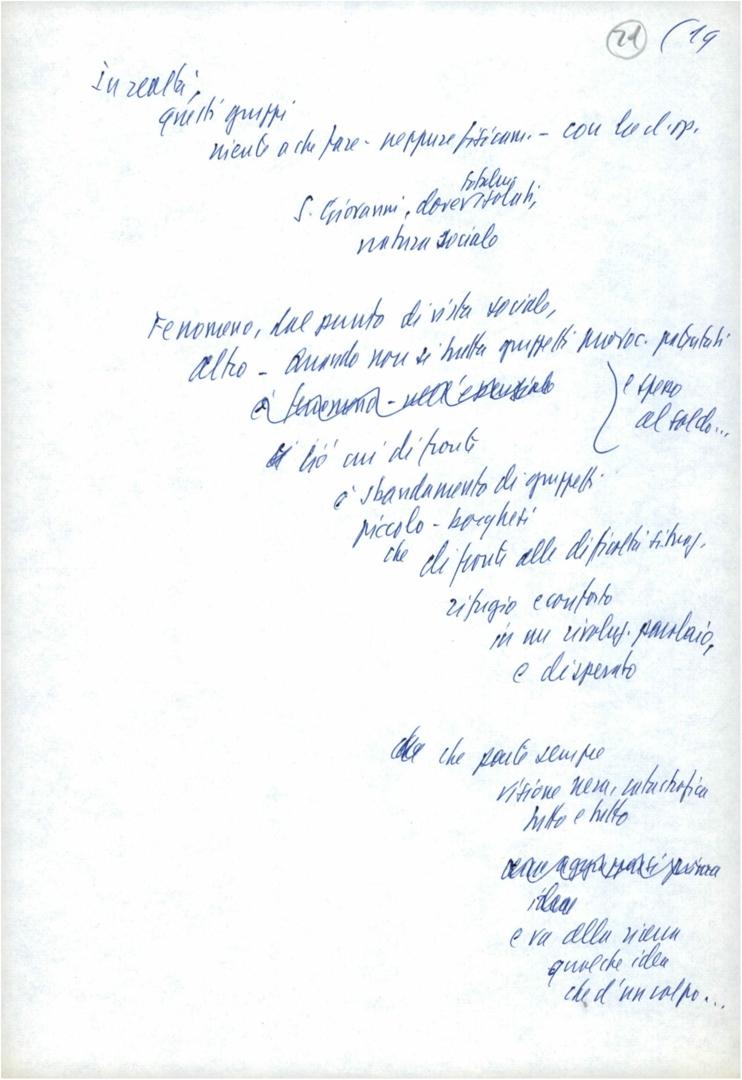 21 (19
In realtà,
questi gruppi
niente a che fare - neppure fisicam. - con la cl. op.
totalm.
S. Giovanni, dove isolati,
natura sociale
Fenomeno, dal punto di vista sociale,
altro - Quando non si tratta gruppetti provoc. patentati
è fenomeno - nell'essenziale
e spesso
al soldo...
ciò cui di fronte
è sbandamento di gruppetti
piccolo - borghesi
che di fronte alle difficoltà situaz.
rifugio e conforto
in un rivoluz. parolaio,
e disperato
che parte sempre
visione nera, catastrofica
tutto e tutto
idea
e va alla ricerca
qualche idea
che d'un colpo...